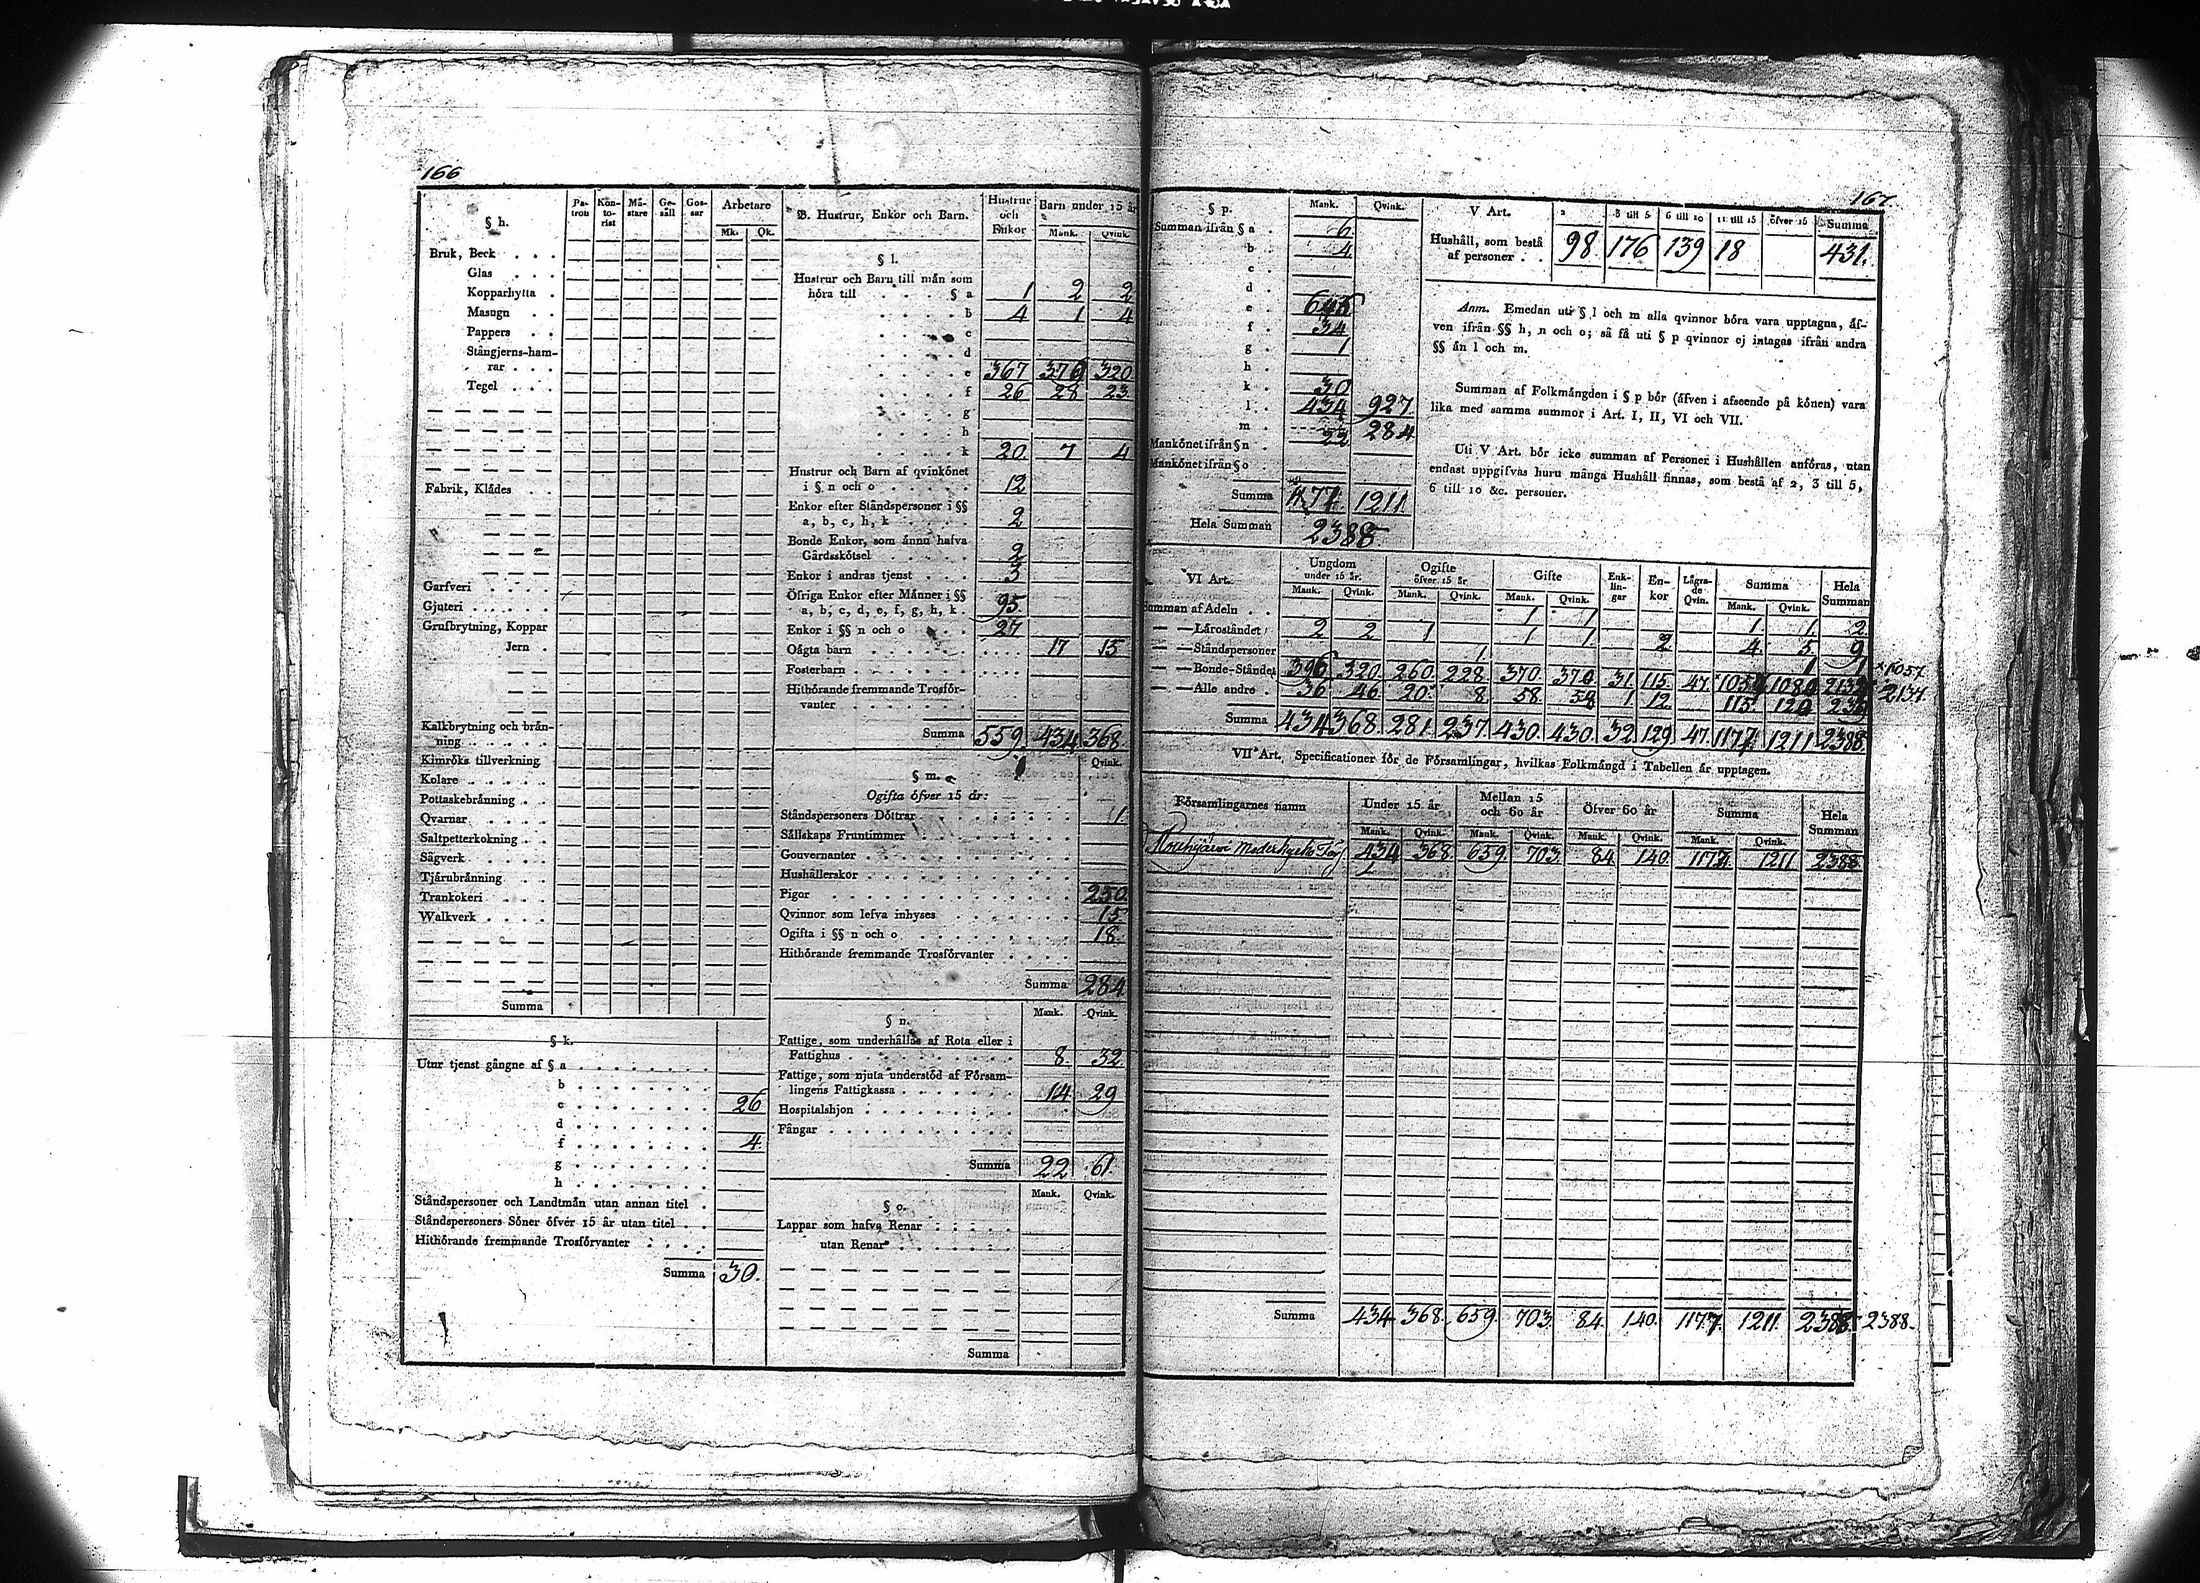 166
§ h.
Pa-tron Kon-to-rist Mä-stare Ge-säll Gos-sar Arbetare
Mk. Qk.
Bruk, Beck
Glas
Kopparhytta
Masugn
Pappers
Stångjerns-ham-
rar
Tegel
Fabrik, Klädes
Garfveri
Gjuteri
Grufbrytning, Koppar
Jern
Kalkbrytning och brån-
ning
Kimröks tillverkning
Kolare
Pottaskebränning
Qvarnar
Saltpetterkokning
Sågverk
Tjärubränning
Trankokeri
Walkverk
Summa
§ k.
Utur tjenst gångne af § a
b
c 26
d
f 4.
g
h
Ståndspersoner och Landtmän utan annan titel
Ståndspersoners Söner öfver 15 år utan titel
Hithörande fremmande Trosförvanter
Summa 30.
B. Hustrur, Enkor och Barn. Hustrur och Enkor Barn under 15 år
Mank. Qvink.
§ l.
Hustrur och Barn till män som
höra till § a 1 2 2
b 4 1 4
c
d
e 367 376 320
f 26 28 23
g
h
k 20. 7 4
Hustrur och Barn af qvinkönet
i § n och o 12
Enkor efter Ståndspersoner i §§
a, b, c, h, k 2
Bonde Enkor, som ännu hafva
Gårdsskötsel 2
Enkor i andras tjenst 3
Öfriga Enkor efter Männer i §§
a, b, c, d, e, f, g, h, k 95.
Enkor i §§ n och o 27
Oägta barn 17 15
Fosterbarn
Hithörande fremmande Trosför-
vanter
Summa 559. 434 368.
§ m. Qvink.
Ogifta öfver 15 år:
Ståndspersoners Döttrar 1
Sällskaps Fruntimmer
Gouvernanter
Hushållerskor
Pigor 250.
Qvinnor som lefva inhyses 15
Ogifta i §§ n och o 18.
Hithörande fremmande Trosförvanter
Summa 284
§ n. Mank. Qvink.
Fattige, som underhållas af Rota eller i
Fattighus 8. 32
Fattige, som njuta understöd af Försam-
lingens Fattigkassa 14 29
Hospitalshjon
Fångar
Summa 22 61.
§ o. Mank. Qvink.
Lappar som hafva Renar
utan Renar
Summa
167.
§ p. Mank. Qvink.
Summan ifrån § a 6
b 4.
c
d
e
f 34
g 1
h
k 30
l 434 927
m 284
Mankönet ifrån § n 22
Mankönet ifrån § o
Summa 1177. 1211.
Hela Summan 2388
V Art. 2 3 till 5 6 till 10 11 till 15 öfver 15 Summa
Hushåll, som bestå
af personer 98. 176 139 18 431.
Anm. Emedan uti § l och m alla qvinnor böra vara upptagna, äf-
ven ifrån §§ h, n och o; så få uti § p qvinnor ej intagas ifrån andra
§§ än l och m.
Summan af Folkmängden i § p bör (äfven i afseende på könen) vara
lika med samma summor i Art. I, II, VI och VII.
Uti V Art. bör icke summan af Personer i Hushållen anföras, utan
endast uppgifvas huru många Hushåll finnas, som bestå af 2, 3 till 5,
6 till 10 &c. personer.
VI Art. Ungdom under 15 år. Ogifte öfver 15 år Gifte Enk-lin-gar En-kor Lägra-de Qvin. Summa Hela Summan
Mank. Qvink. Mank. Qvink. Mank. Qvink. Mank. Qvink.
Summan af Adeln 1 1 1 1 2
— — Läroståndet 2 2 1 1 1 2 4 5 9
— — Ståndspersoner 1 1 1
— — Bonde-Ståndet 396 320. 260. 228. 370. 370 31. 115. 47. × 1057.
2137
— — Alle andre 36 46 20. 8 58. 58 1 12 115.
Summa 434 368. 281. 237. 430. 430. 32 129. 47. 1177. 1211 2388
VII Art. Specificationer för de Församlingar, hvilkas Folkmängd i Tabellen är upptagen.
Församlingarnes namn Under 15 år Mellan 15 och 60 år Öfver 60 år Summa Hela Summan
Mank. Qvink. Mank. Qvink. Mank. Qvink. Mank. Qvink.
Moderkyrko 434 368 659. 703. 84. 140. 1177 1211 2388
Summa 434 368. 659. 703. 84. 140. 1177. 1211. 2388. 2388.